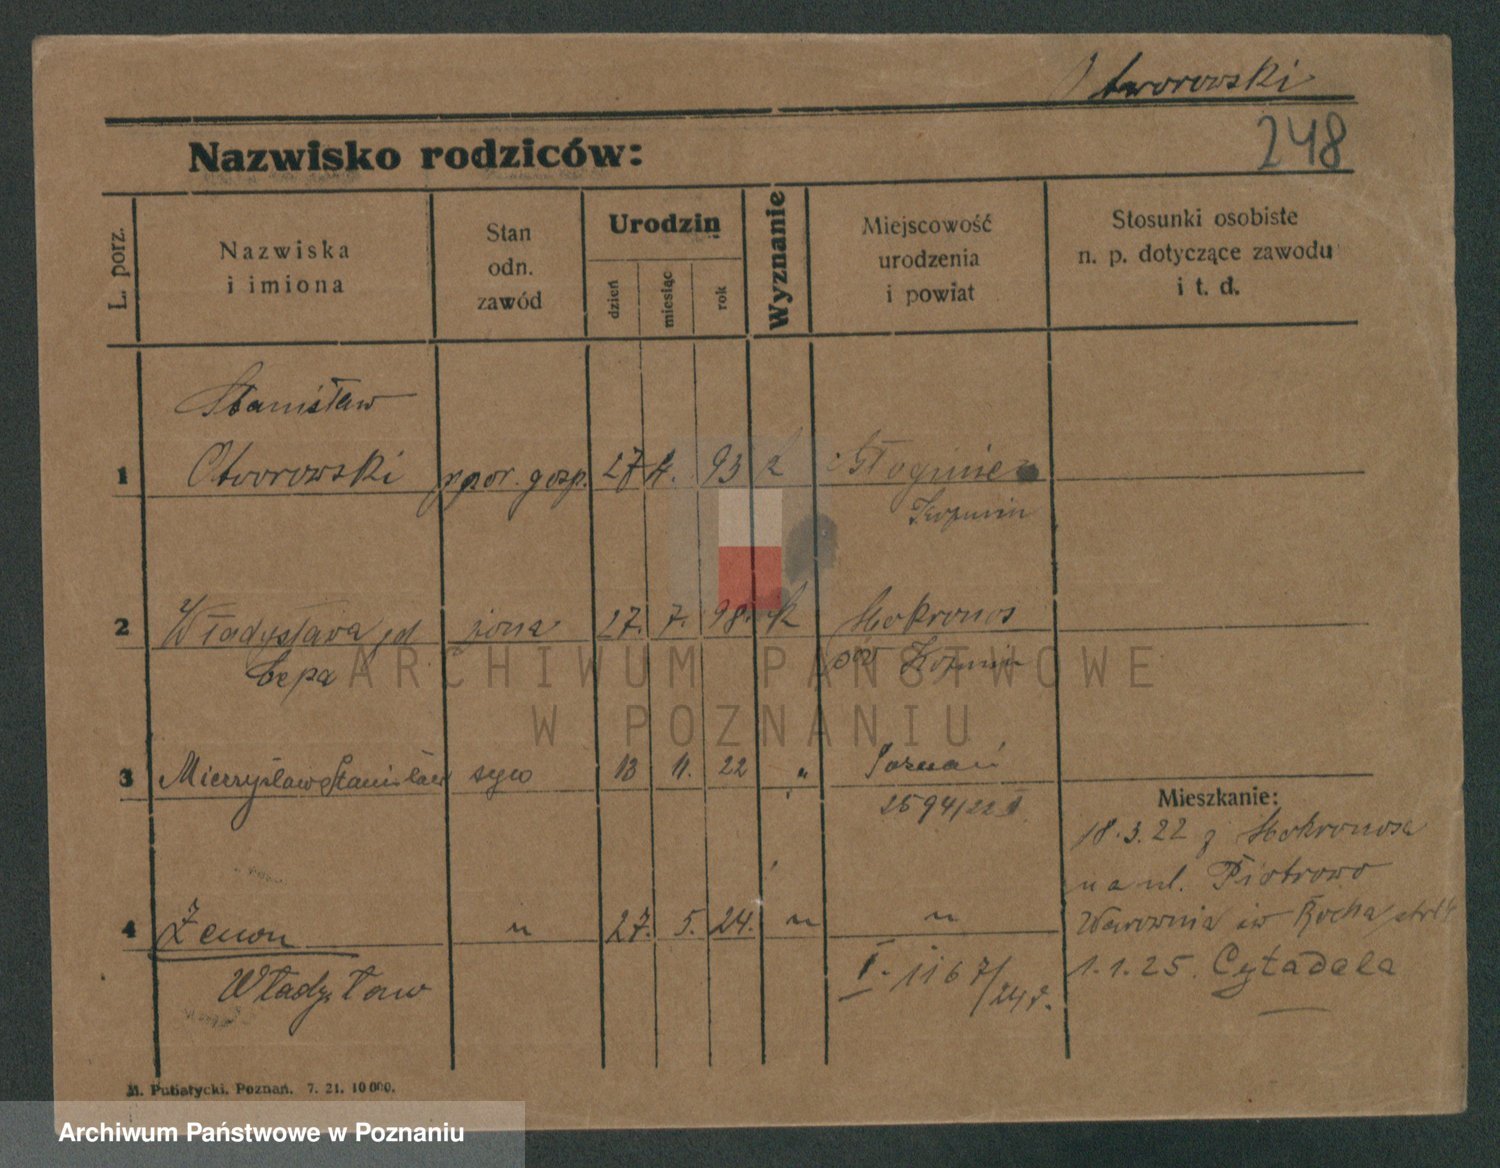 Otworowski
248
Nazwisko rodziców:
L. porz.
Nazwiska
i imiona
Stan
odn.
zawód
Urodzin
dzień
miesiąc
rok
Wyznanie
Miejscowość
urodzenia
i powiat
Stosunki osobiste
n. p. dotyczące zawodu
i t. d.
Stanisław
1 Otworowski ppor. gosp. 27 4. 93 k
2 Władysława żona 27. 7. 98. k Mokronos
Cepa Koźmin
3 Mieczysław Stanisław syn 13 11. 22 " Poznań
2594/22
Mieszkanie:
18.3.22 z Mokronosa
na ul. Piotrowo
Warownia św Rocha
4 Zenon " 27. 5. 24. " "
Władysław
I. 1167/24
1.1.25. Cytadela
M. Putiatycki, Poznań. 7. 21. 10000.
ARCHIWUM PAŃSTWOWE
W POZNANIU
Archiwum Państwowe w Poznaniu